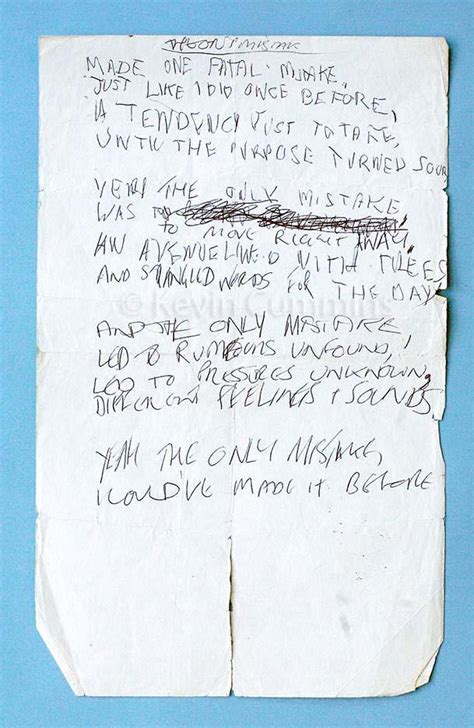 THE ONLY MISTAKE
MADE ONE FATAL MISTAKE,
JUST LIKE I DID ONCE BEFORE,
A TENDENCY JUST TO TAKE,
UNTIL THE PURPOSE TURNED SOUR
YEH THE ONLY MISTAKE
WAS TO
TO MOVE RIGHT AWAY,
AN AVENUE LINED WITH TREES
AND STRANGLED WORDS FOR THE DAY
© Kevin Cummins
AND THE ONLY MISTAKE
LED TO RUMOURS UNFOUND,
LED TO PRESSURES UNKNOWN,
DIFFERENT FEELINGS & SOUNDS
YEAH THE ONLY MISTAKE,
I COULD'VE MADE IT BEFORE